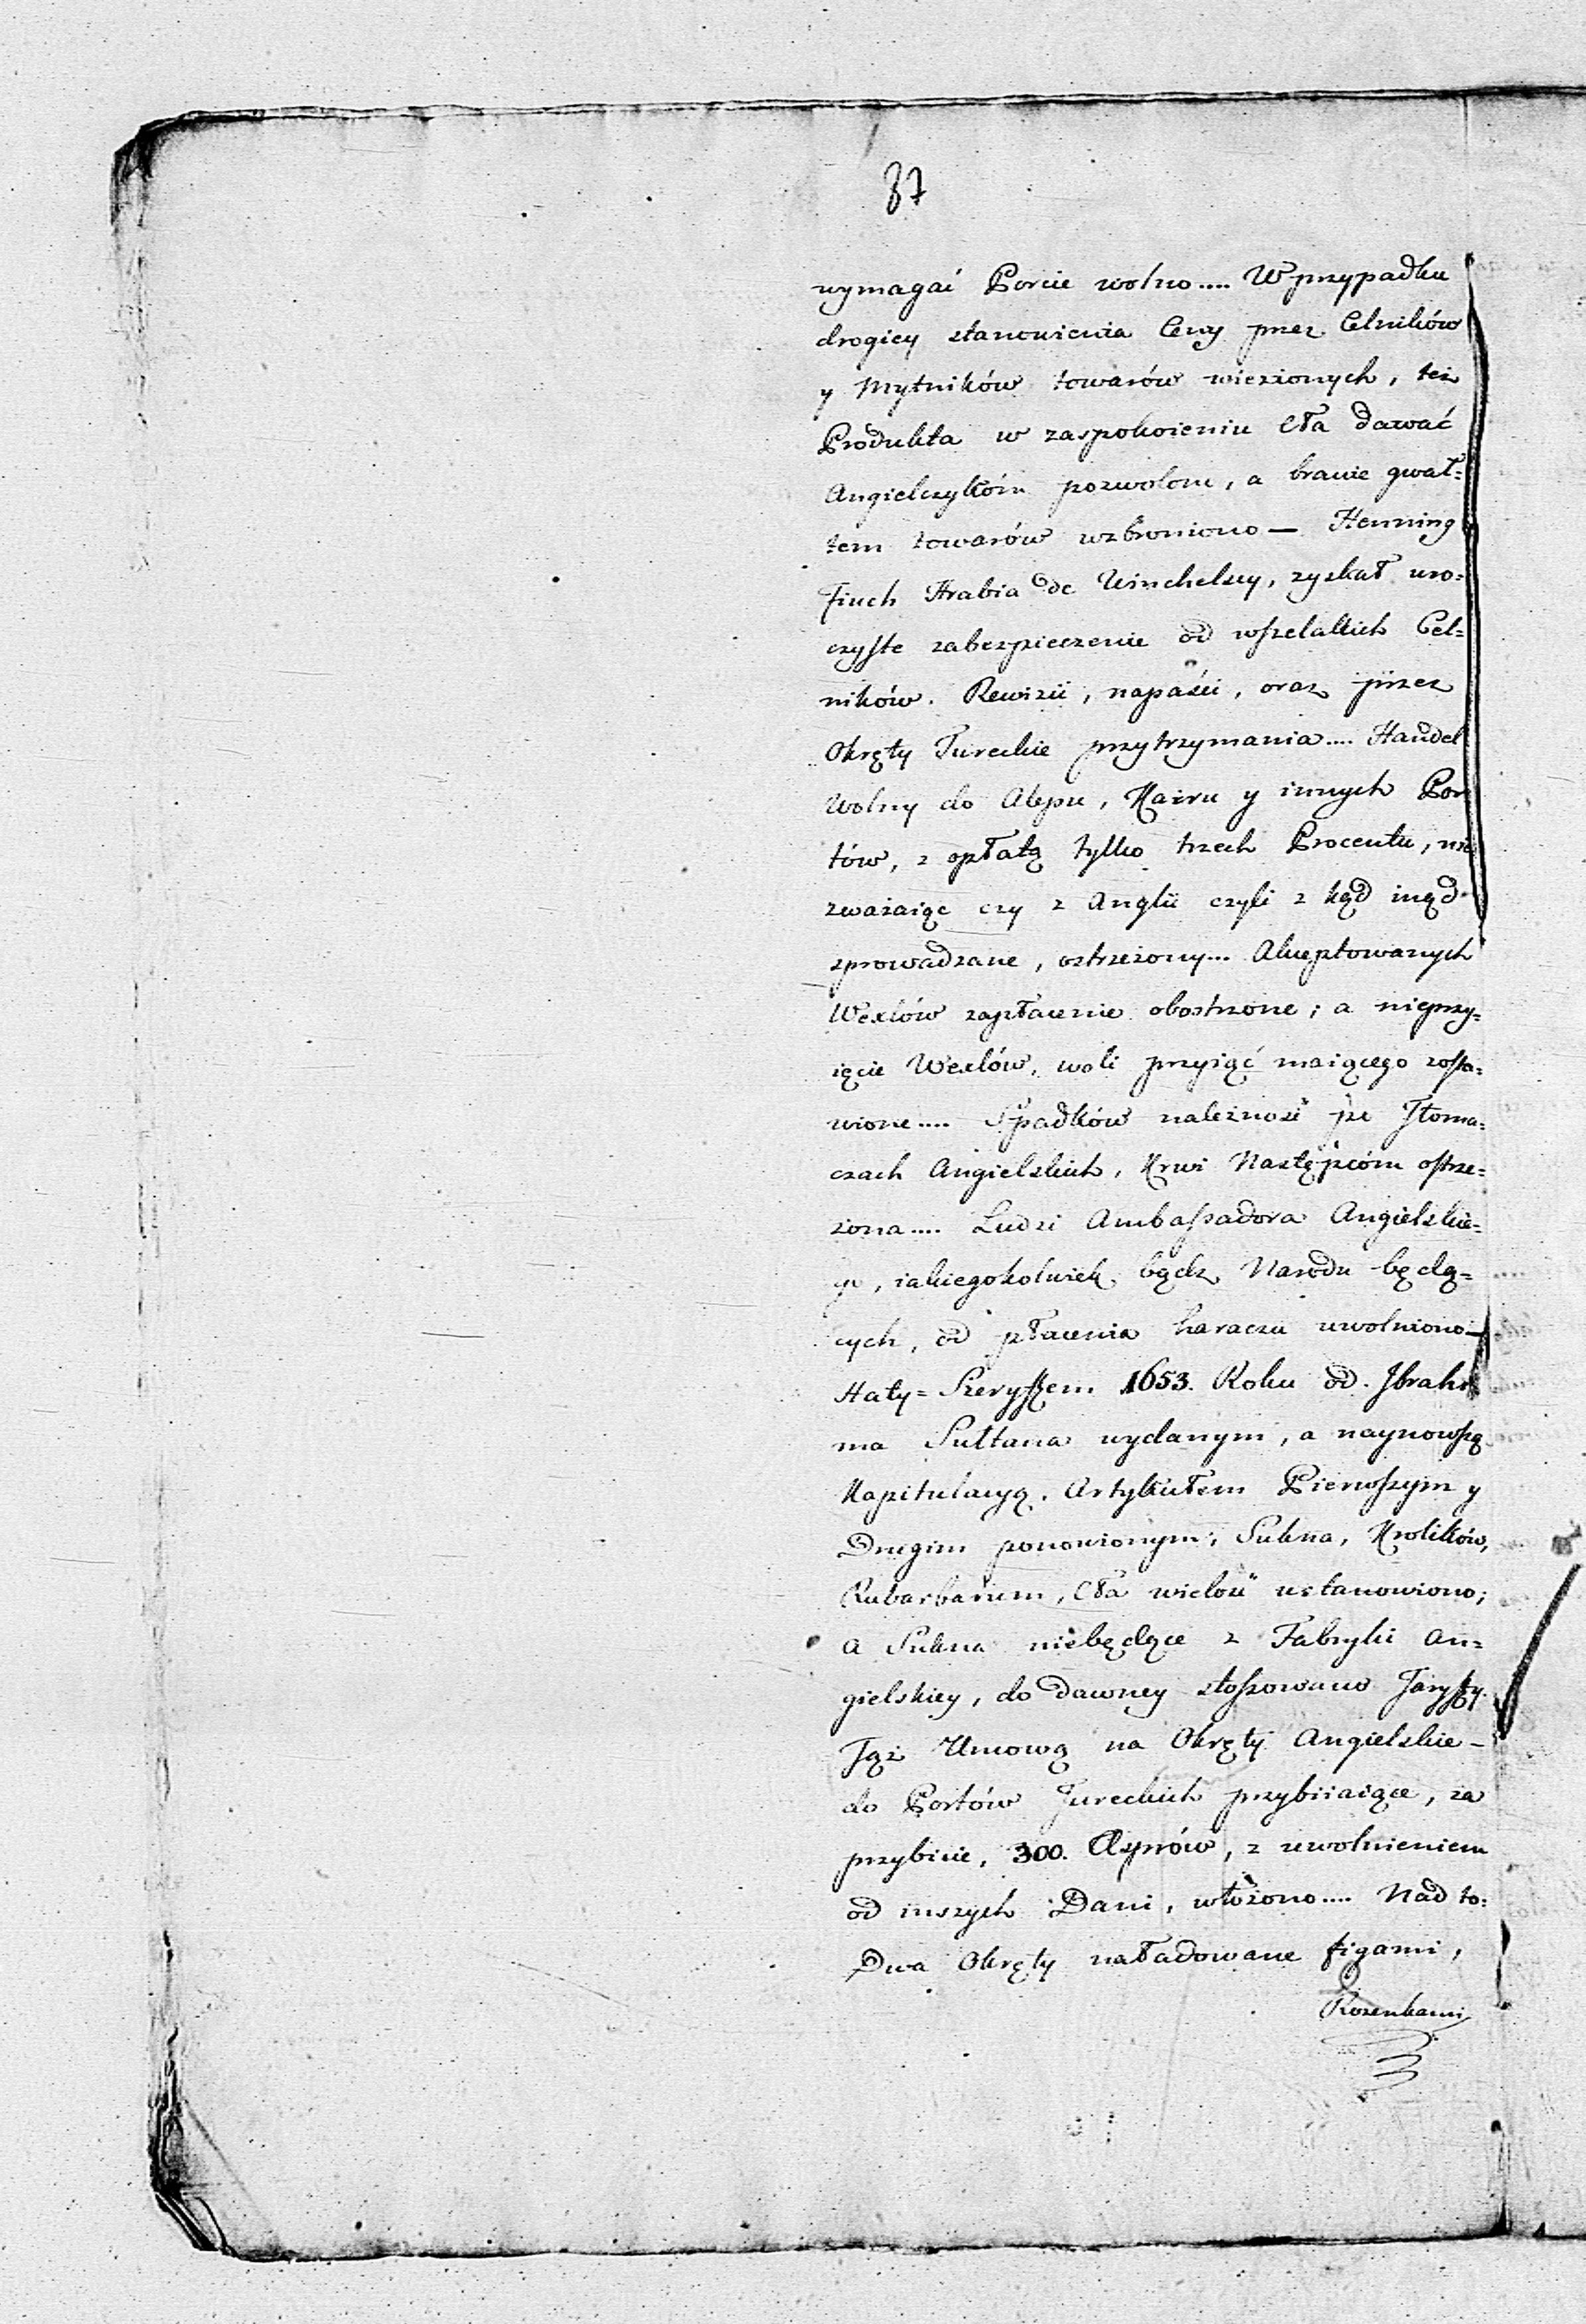 87
wymagać Porcie wolno.... W przypadku
drogiey stanowienia Ceny przez Celników
y Mytników towarów wiezionych, też
Produkta w zaspokoieniu Cła dawać
Angielczyków pozwolono, a branie gwał=
tem towarów wzbroniono — Henning
Finch Hrabia de Winchelsey, zyskał uro=
czyste zabezpieczenie od wszelakich Cel=
ników. Rewizii, napaści, oraz przez
Okręty Tureckie przytrzymania.... Handel
Wolny do Alepu, Kairu y innych Por
tów, z opłatą tylko trzech Procentu, nie
zważaiąc czy z Anglii czyli z kąd inąd
sprowadzane, ostrzeżony... Akceptowanych
Wexlów zapłacenie obostrzone; a nieprzy=
ięcie Wexlów, woli przyiąć maiącego zosta=
wione.... Spadków należność po Tłoma=
czach Angielskich, Krwi Następcóm ostrze=
żona.... Ludzi Ambassadora Angielskie=
go, iakiegokolwiek bądz Narodu będą=
cych, od płacenia haraczu uwolniono —
Haty=Szeryffem 1653. Roku od Ibrahi
ma Sultana wydanym, a naynowszą
Kapitulacyą. Artykułem Pierwszym y
Drugim ponowionym; Sukna, Krolików,
Rubarbarum, Cła wielość ustanowiono;
a Sukna niebędące z Fabryki An=
gielskiey, do dawney stoszowano Taryffy.
Tąż Umową na Okręty Angielskie -
do Portów Tureckich przybiiaiące, za
przybicie, 300. Asprów, z uwolnieniem
od inszych Dani, włożono.... Nad to:
Dwa Okręty naładowane figami,
Rozenkami